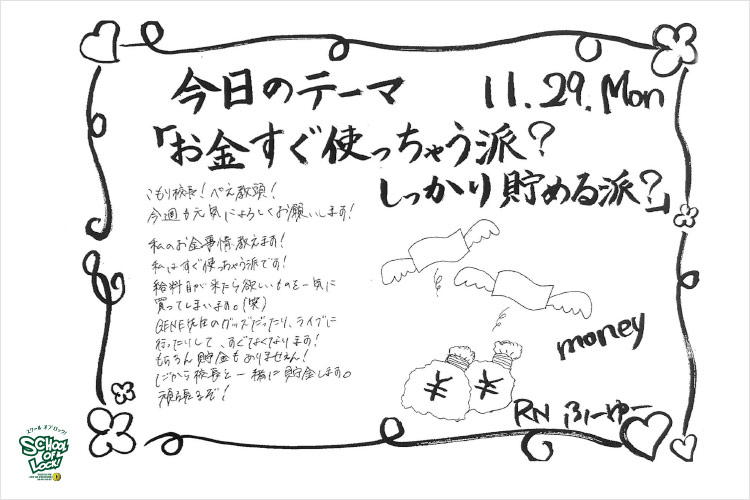 今日のテーマ 11.29.Mon
「お金すぐ使っちゃう派?
しっかり貯める派?」
こもり校長!ぺえ教頭!
今週も元気によろしくお願いします!
私のお金事情教えます!
私はすぐ使っちゃう派です!
給料日が来たら欲しいものを一気に
買ってしまいます。(笑)
GENE先生のグッズだったり、ライブに
行ったりして、すぐなくなります!
もちろん貯金もありません!
だから校長と一緒に貯金します。
頑張るぞ!
money
¥ ¥
RN ふーゆー
スクール オブ ロック!
SCHOOL
OF
LOCK!